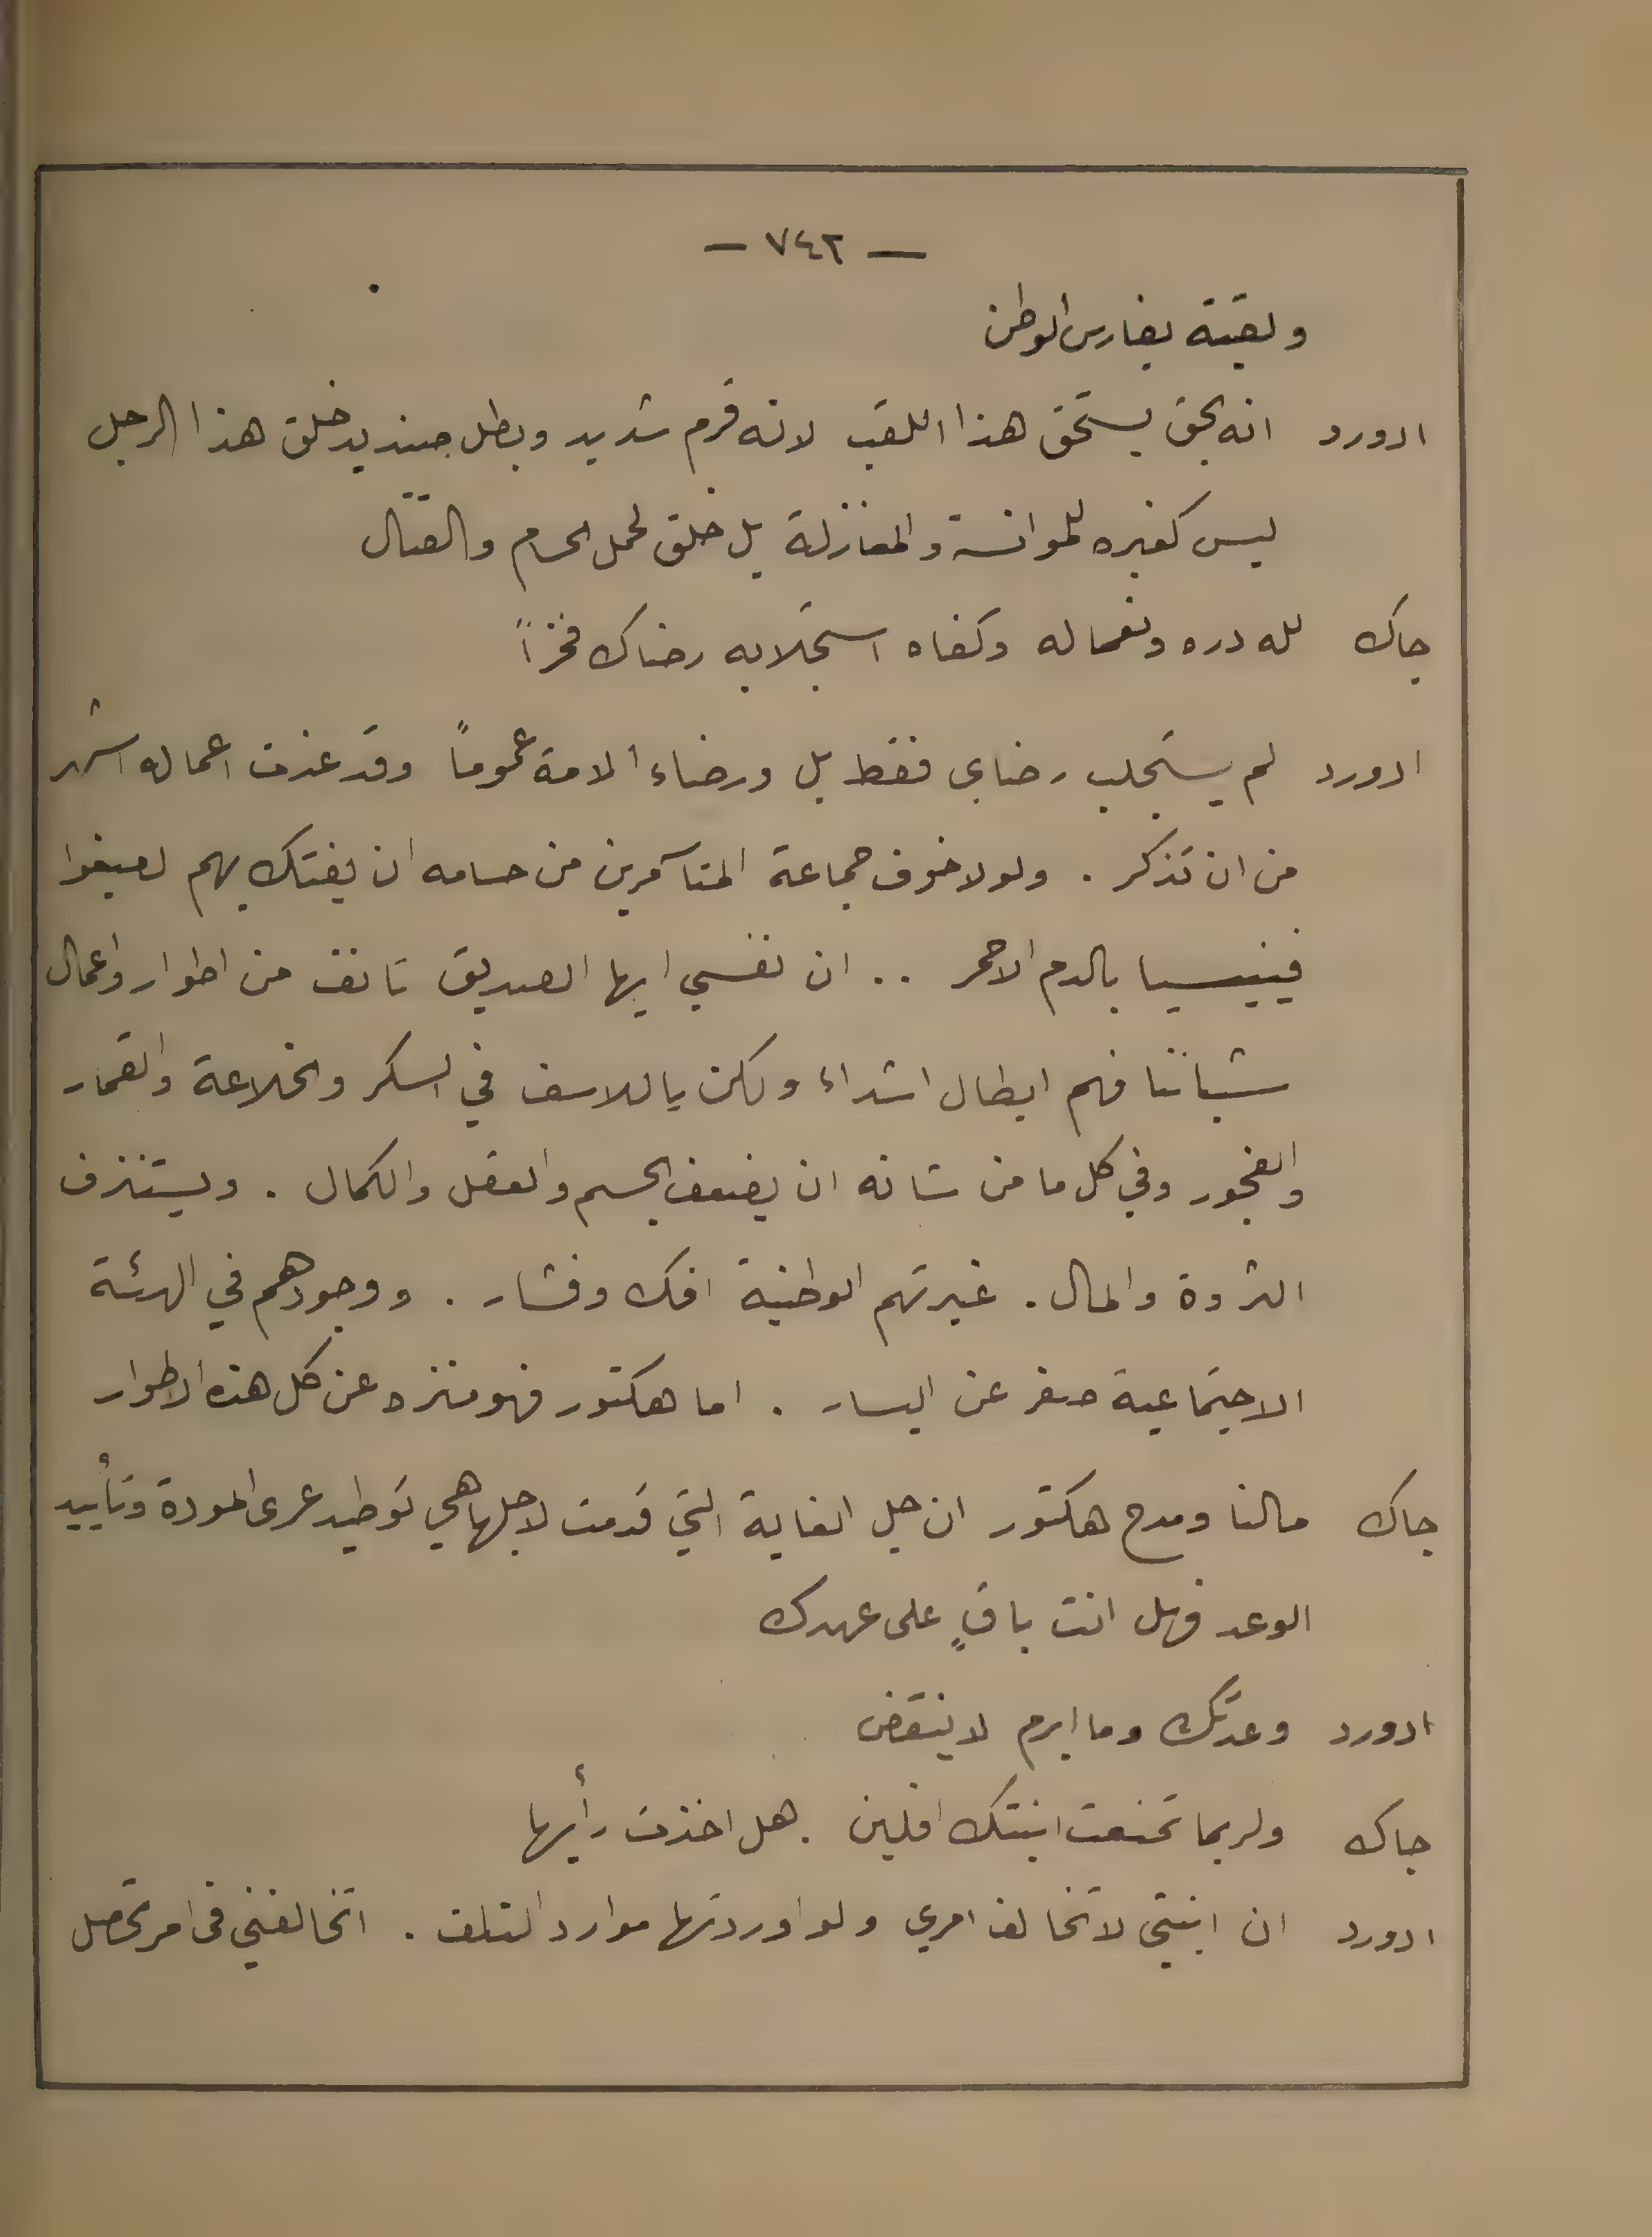 — ٧٤٢ —
ولقبته بفارس الوطن
ادورد انه بحق يستحق هذا اللقب لانه قرم شديد وبطل صنديد خلق هذا الرجل
ليس كغيره للموانسة والمغازلة بل خلق لحمل الحسام والقتال
جاك لله دره ونعماله وكفاه استجلابه رضاك فخراً
ادورد لم يستجلب رضاي فقط بل ورضاء الامة عموماً وقد غدت اعماله اشهر
من ان تذكر . ولولا خوف جماعة المتآمرين من حسامه ان يفتك بهم لصبغوا
فينيسيا بالدم الاحمر .. ان نفسي ايها الصديق تانف من اطوار واعمال
شباننا فهم ابطال اشداء ولكن ياللاسف في السكر والخلاعة والقمار
والفجور وفي كل ما من شانه ان يضعف الجسم والعقل والكمال . ويستنزف
الثروة والمال . غيرتهم الوطنية افك وفشار . ووجودهم في الهيئة
الاجتماعية صفر عن اليسار . اما هكتور فهو منزه عن كل هذه الاطوار
جاك مالنا ومدح هكتور ان جل الغاية التي قدمت لاجلها هي توطيد عرى المودة وتأييد
الوعد فهل انت باقٍ على عهدك
ادورد وعدتك وما ابرم لا ينقض
جاك ولربما تمنعت ابنتك افلين . هل اخذت رأيها
ادورد ان ابنتي لا تخالف امري ولو اوردتها موارد التلف . اتخالفني في امر تحصل